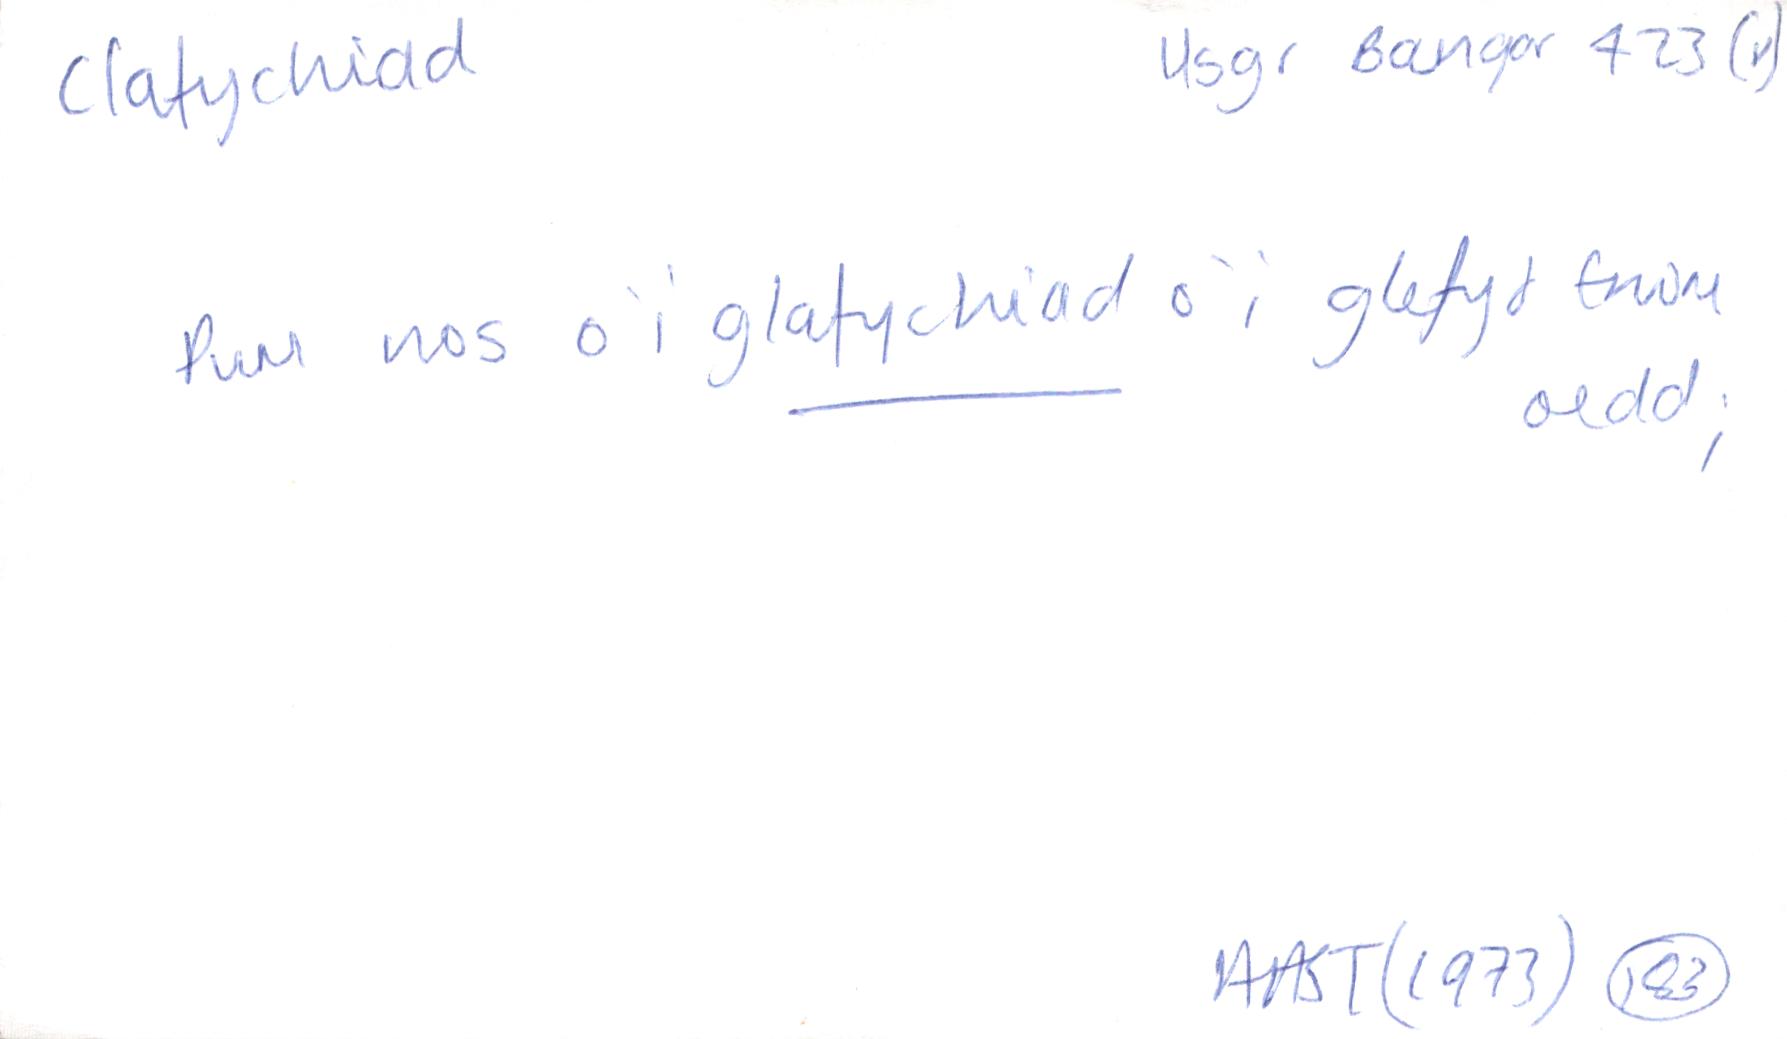 Clafychiad
Llsgr Bangor 423 (r)
Pum nos o'i glafychiad o'i glefyd trwm
oedd;
AAST (1973) 183